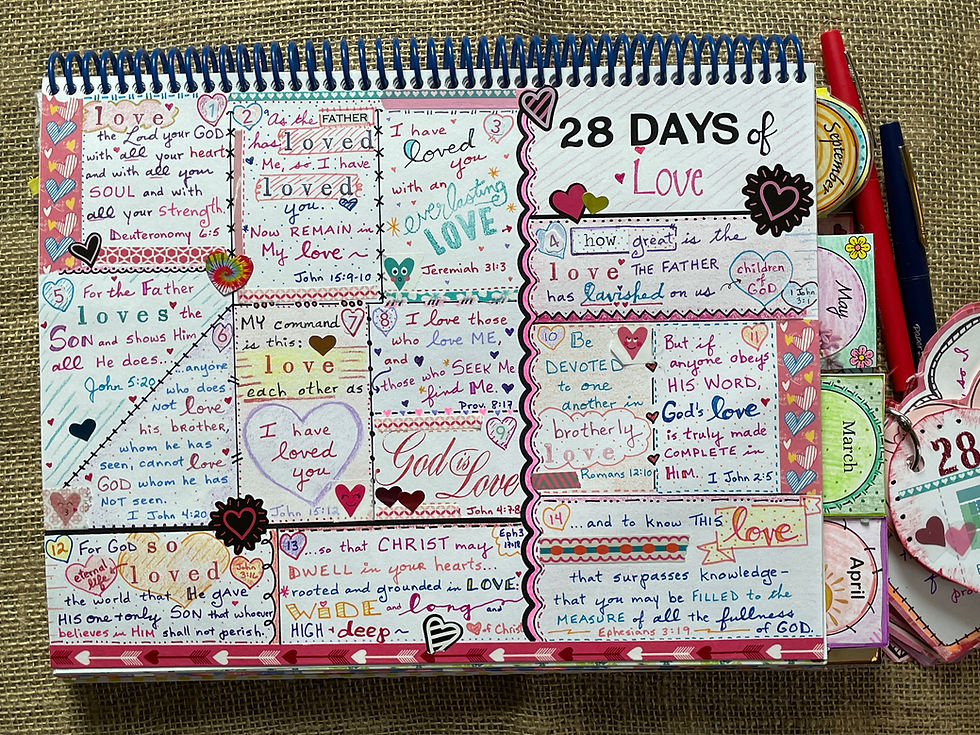 28 DAYS of
Love
1
love
the Lord your GOD
with all your heart
and with all your
SOUL and with
all your strength.
Deuteronomy 6:5
2
As the FATHER
has loved
Me, so I have
loved
you.
Now REMAIN in
My love~
John 15:9-10
3
I have
loved
you
with an
everlasting
LOVE
Jeremiah 31:3
4
how great is the
love THE FATHER
has lavished on us
children
of
GOD
1 John
3:1
5
For the Father
loves the
SON and shows Him
all He does...
John 5:20
6
...anyone
who does
not love
his brother,
whom he has
seen, cannot love
GOD whom he has
NOT seen.
I John 4:20
7
MY command
is this:
love
each other as
I have
loved
you
John 15:12
8
I love those
who love ME,
and
those who SEEK Me
find Me.
Prov. 8:17
9
God is
Love
John 4:7-8
10
Be
DEVOTED
to one
another in
brotherly
love
Romans 12:10
11
But if
anyone obeys
HIS WORD,
God's love
is truly made
COMPLETE in
HIM.
I John 2:5
12
For GOD so
eternal
life
loved
John
3:16
the world that He GAVE
HIS one+only SON that whoever
believes in HIM shall not perish.
13
...so that CHRIST may
Eph 3
17-18
DWELL in your hearts...
rooted and grounded in LOVE
WIDE and long and
HIGH + deep~
of Christ
14
...and to know THIS love
that surpasses knowledge-
that you may be FILLED to the
MEASURE of all the fullness
of GOD.
Ephesians 3:19
September
May
March
April
so I
28